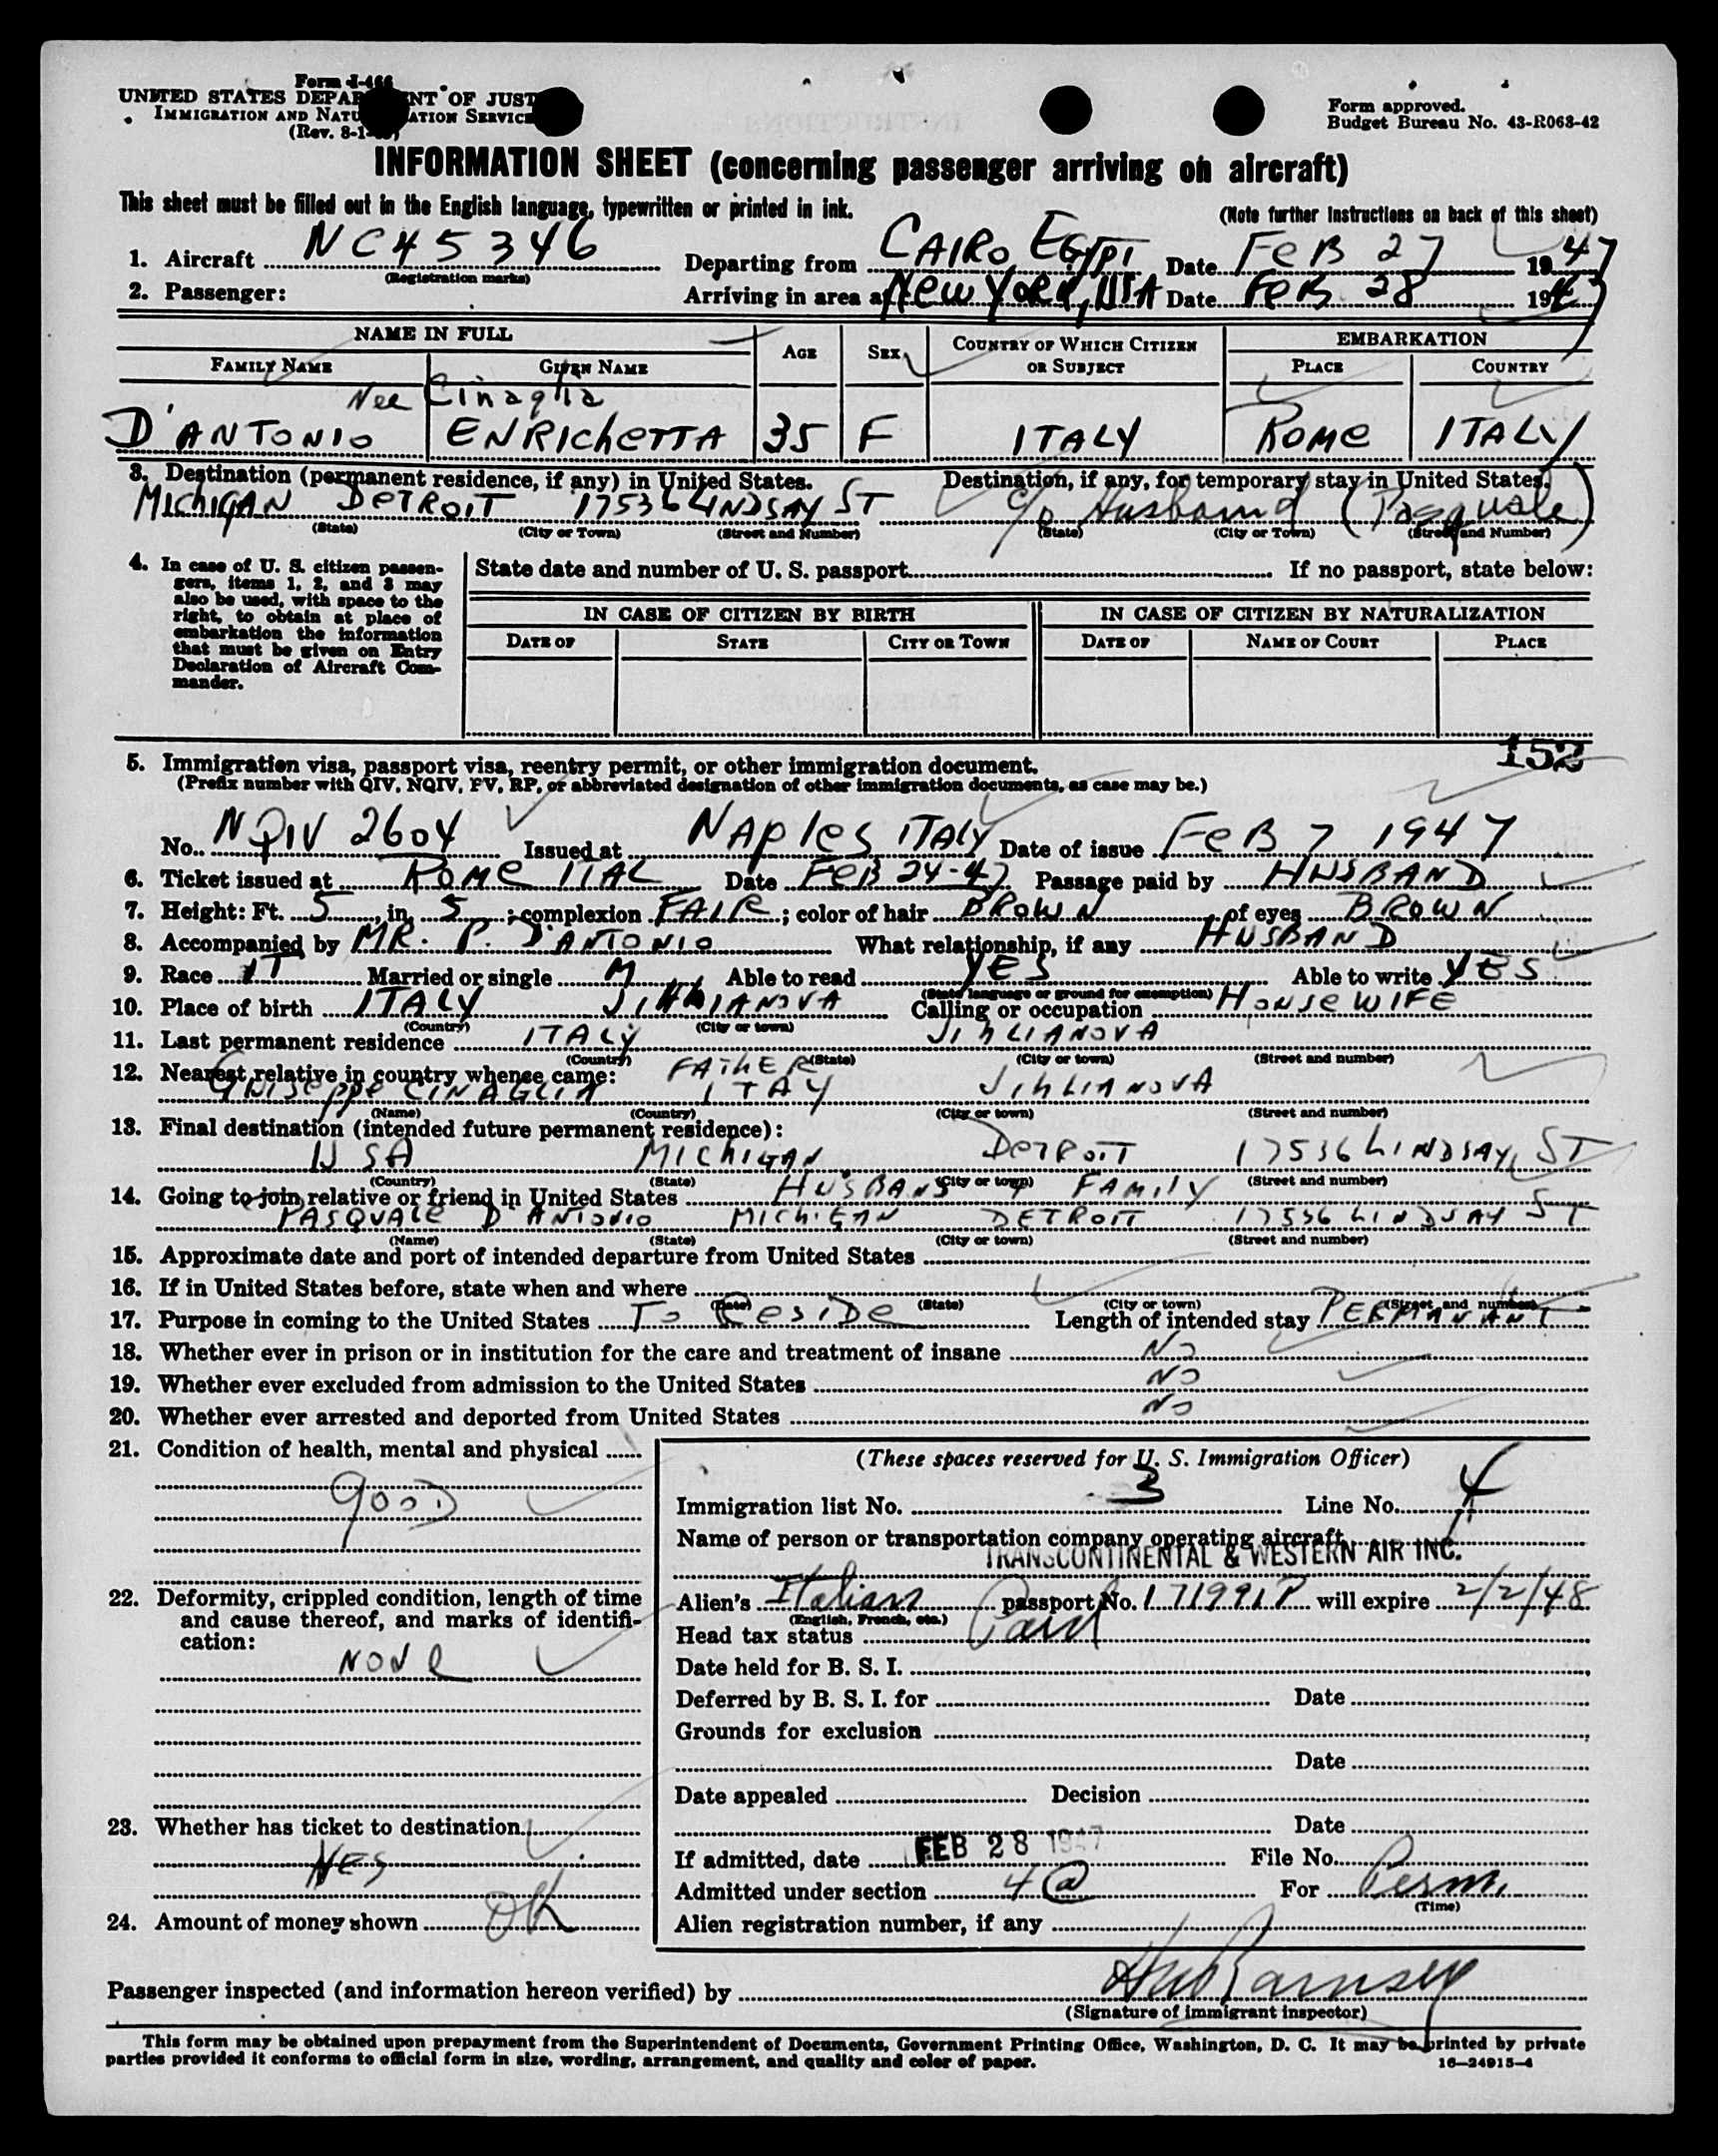 Form I-466
UNITED STATES DEPARTMENT OF JUSTICE
IMMIGRATION AND NATURALIZATION SERVICE
(Rev. 8-1-
Form approved.
Budget Bureau No. 43-R063-42
INFORMATION SHEET (concerning passenger arriving on aircraft)
This sheet must be filled out in the English language, typewritten or printed in ink.
(Note further instructions on back of this sheet)
1. Aircraft NC45346 Departing from CAIRO EGYPT Date FEB 27 1947
(Registration marks)
2. Passenger: Arriving in area at NEW YORK, USA Date FEB 28 1947
NAME IN FULL AGE SEX COUNTRY OF WHICH CITIZEN OR SUBJECT EMBARKATION
FAMILY NAME GIVEN NAME PLACE COUNTRY
Nee Cinaglia
D'ANTONIO ENRICHETTA 35 F ITALY ROME ITALY
3. Destination (permanent residence, if any) in United States. Destination, if any, for temporary stay in United States.
MICHIGAN DETROIT 17536 LINDSAY ST c/o Husband (Pasquale)
(State) (City or Town) (Street and Number) (State) (City or Town) (Street and Number)
4. In case of U. S. citizen passengers, items 1, 2, and 3 may also be used, with space to the right, to obtain at place of embarkation the information that must be given on Entry Declaration of Aircraft Commander.
State date and number of U. S. passport If no passport, state below:
IN CASE OF CITIZEN BY BIRTH IN CASE OF CITIZEN BY NATURALIZATION
DATE OF STATE CITY OR TOWN DATE OF NAME OF COURT PLACE
152
5. Immigration visa, passport visa, reentry permit, or other immigration document.
(Prefix number with QIV, NQIV, PV, RP, or abbreviated designation of other immigration documents, as case may be.)
No. NQIV 2604 Issued at NAPLES ITALY Date of issue FEB 7 1947
6. Ticket issued at ROME ITAL Date FEB 24-47 Passage paid by HUSBAND
7. Height: Ft. 5, in. 5; complexion FAIR; color of hair BROWN of eyes BROWN
8. Accompanied by MR. P. D'ANTONIO What relationship, if any HUSBAND
9. Race IT Married or single M Able to read YES Able to write YES
(State language or ground for exemption)
10. Place of birth ITALY JIHLIANOVA Calling or occupation HOUSEWIFE
(Country) (City or town)
11. Last permanent residence ITALY JIHLIANOVA
(Country) (State) (City or town) (Street and number)
12. Nearest relative in country whence came: FATHER
GUISEPPE CINAGLIA ITAY JIHLIANOVA
(Name) (Country) (City or town) (Street and number)
13. Final destination (intended future permanent residence):
USA MICHIGAN DETROIT 17536 LINDSAY ST
(Country) (State) (City or town) (Street and number)
14. Going to join relative or friend in United States HUSBAND & FAMILY
PASQUALE D'ANTONIO MICHIGAN DETROIT 17536 LINDSAY ST
(Name) (State) (City or town) (Street and number)
15. Approximate date and port of intended departure from United States
16. If in United States before, state when and where
(Date) (State) (City or town) (Street and number)
17. Purpose in coming to the United States TO RESIDE Length of intended stay PERMANANT
18. Whether ever in prison or in institution for the care and treatment of insane NO
19. Whether ever excluded from admission to the United States NO
20. Whether ever arrested and deported from United States NO
21. Condition of health, mental and physical
GOOD
22. Deformity, crippled condition, length of time and cause thereof, and marks of identification:
NONE
23. Whether has ticket to destination
YES
24. Amount of money shown OK
(These spaces reserved for U. S. Immigration Officer)
Immigration list No. 3 Line No. 4
Name of person or transportation company operating aircraft
TRANSCONTINENTAL & WESTERN AIR INC.
Alien's Italian passport No. 171991P will expire 2/2/48
(English, French, etc.)
Head tax status Paid
Date held for B. S. I.
Deferred by B. S. I. for Date
Grounds for exclusion
Date
Date appealed Decision
Date
If admitted, date FEB 28 1947 File No.
Admitted under section 4 (a) For Perm.
(Time)
Alien registration number, if any
Passenger inspected (and information hereon verified) by Ramsey
(Signature of immigrant inspector)
This form may be obtained upon prepayment from the Superintendent of Documents, Government Printing Office, Washington, D. C. It may be printed by private
parties provided it conforms to official form in size, wording, arrangement, and quality and color of paper. 16—24915-4